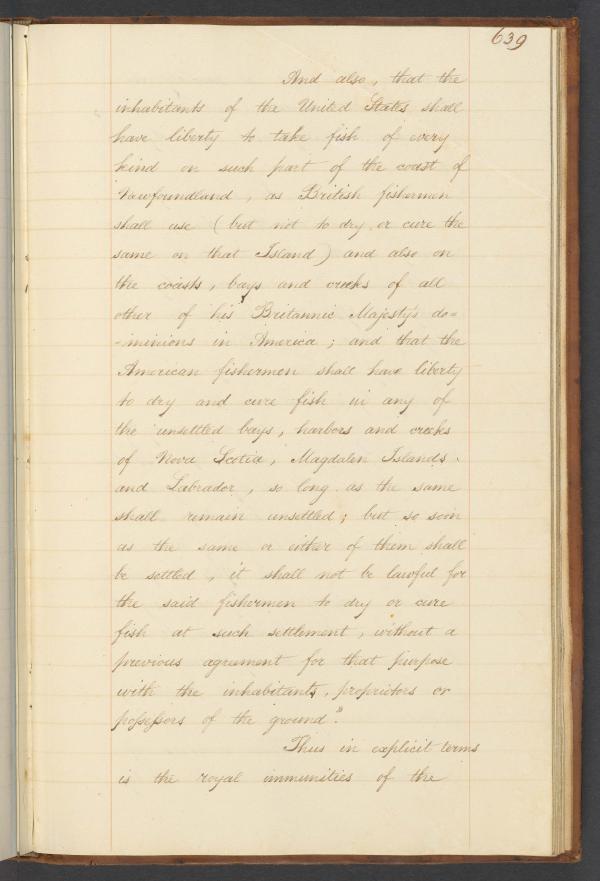 639
And also, that the
inhabitants of the United States shall
have liberty to take fish of every
kind on such part of the coast of
Newfoundland, as British fishermen
shall use (but not to dry or cure the
same on that Island) and also on
the coasts, bays and creeks of all
other of his Britannic Majesty's do=
=minions in America; and that the
American fishermen shall have liberty
to dry and cure fish in any of
the unsettled bays, harbors and creeks
of Nova Scotia, Magdalen Islands.
and Labrador, so long as the same
shall remain unsettled; but so soon
as the same or either of them shall
be settled, it shall not be lawful for
the said fishermen to dry or cure
fish at such settlement, without a
previous agreement for that purpose
with the inhabitants, proprietors or
possessors of the ground."
Thus in explicit terms
is the royal immunities of the